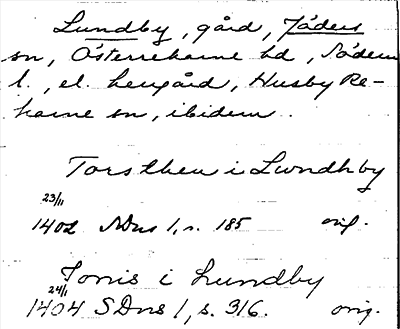 Lundby, gård, Jäders
sn, Österrekarne hd, Söderm
l., el. herrgård, Husby Re-
karne sn, ibidem.
Torsthen i Lwndhby
23/11
1402 SDns 1, s. 185 orig.
Jonis i Lundby
24/1
1404 SDns 1, s. 316. orig.